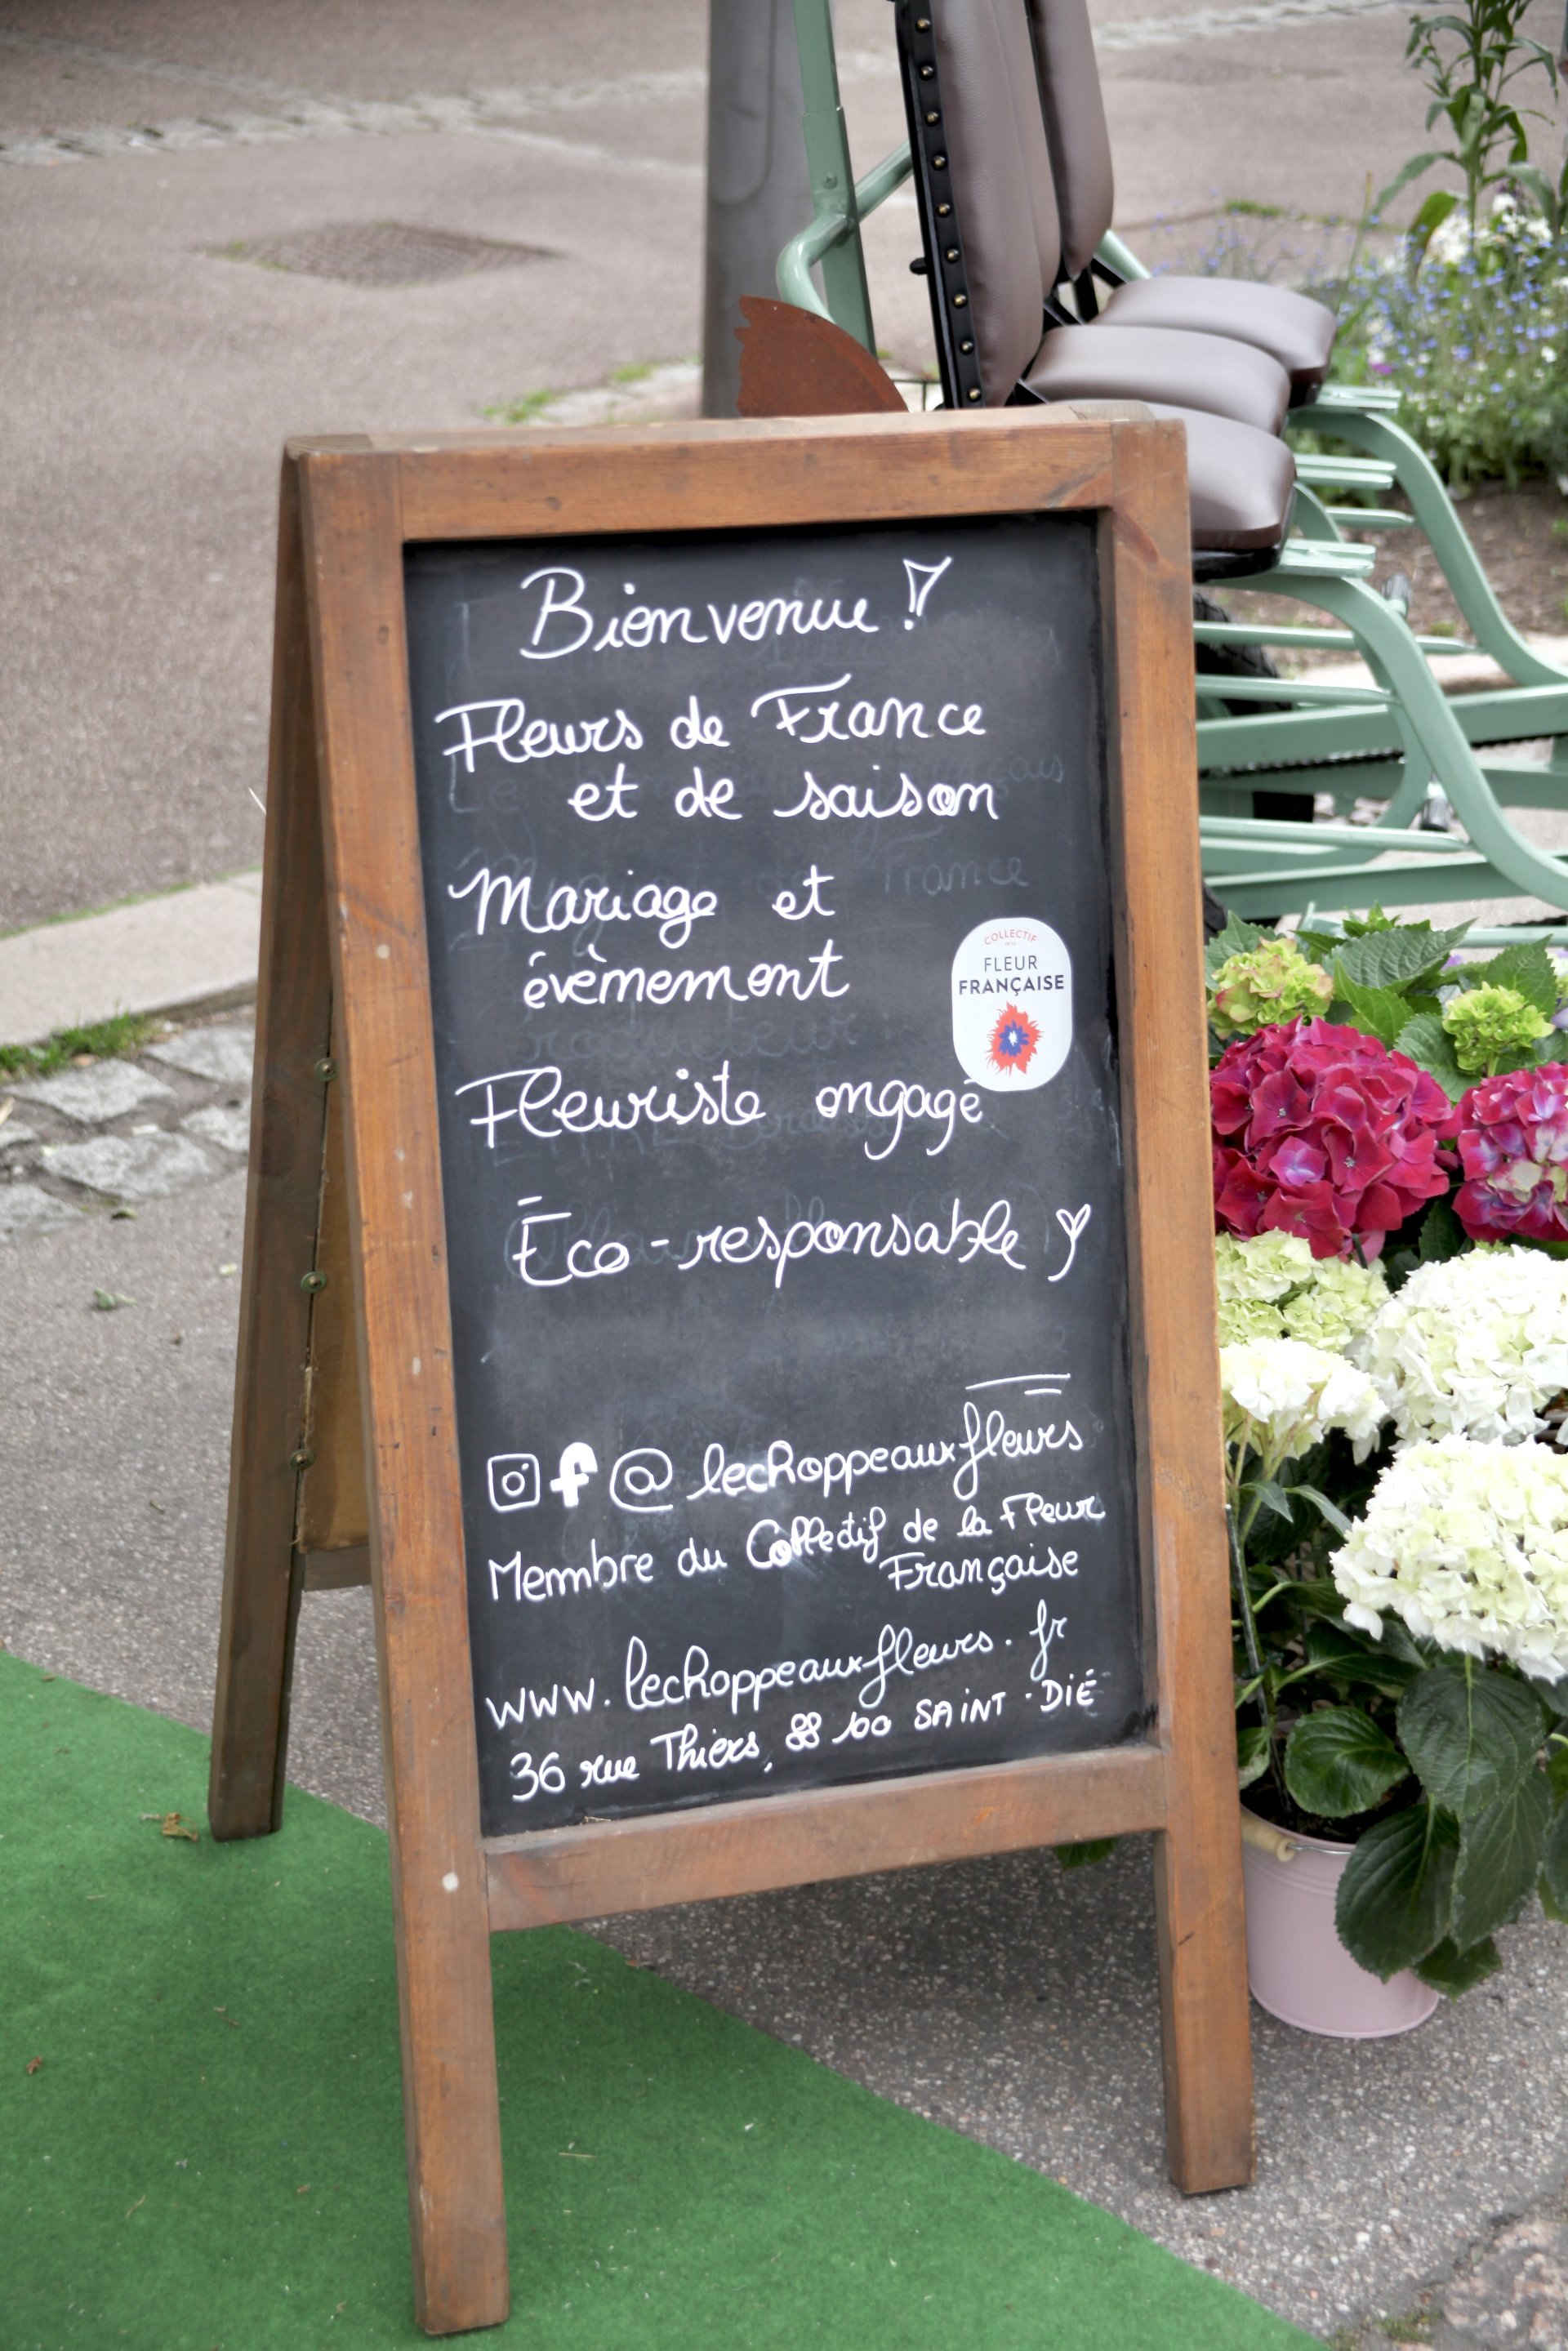 Bienvenue !
Fleurs de France
et de saison
Mariage et
évènement
COLLECTIF
DE LA
FLEUR
FRANÇAISE
Fleuriste engagé
Éco-responsable
@lechoppeauxfleurs
Membre du Collectif de la Fleur
Française
www.lechoppeauxfleurs.fr
36 rue Thiers, 88100 SAINT-DIÉ